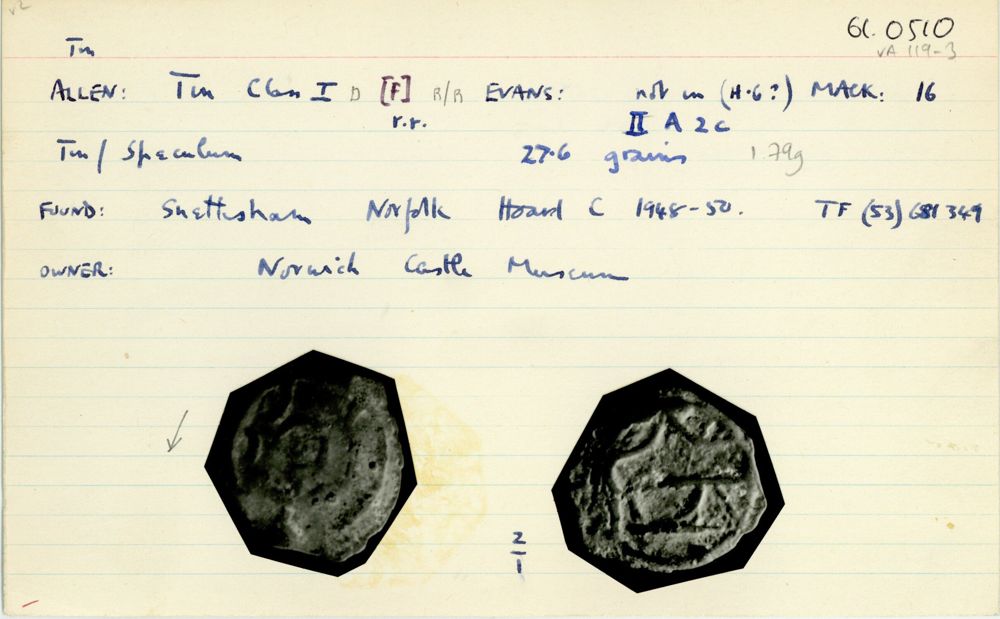 v2
61.0510
Tin
VA 119-3
ALLEN: Tin Class I D [F] B/B EVANS: not in (H.6?) MACK: 16
r.r. II A 2c
Tin/Speculum 27.6 grains 1.79g
FOUND: Snettisham Norfolk Hoard C 1948-50. TF (53) 681 349
OWNER: Norwich Castle Museum
2
1